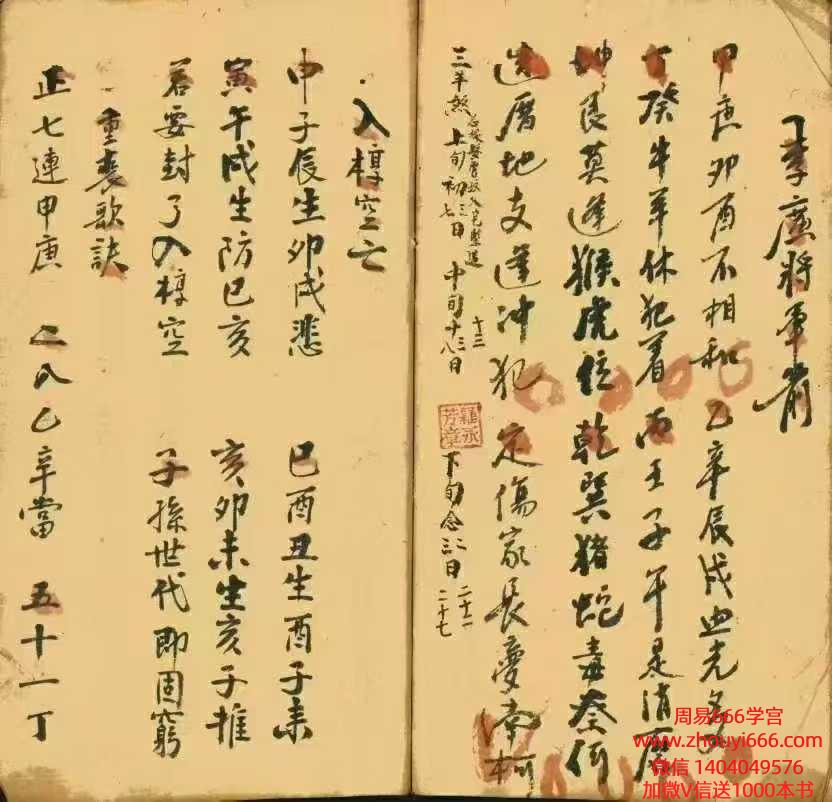 李廣將軍箭
甲庚卯酉不相和 乙辛辰戌血光多
丁癸牛羊休犯着 丙壬子午是消磨
坤艮莫逢猴虎位 乾巽豬蛇毒奈何
造曆地支逢冲犯 定傷家長夢南柯
三羊煞 上旬初三日 初七 中旬十三日 十八 下旬念二日
二十七
羅永芳章
入椁空亡
申子辰生卯戌悲 巳酉丑生酉子未
寅午戌生防巳亥 亥卯未生亥子推
若要封了入椁空 子孫世代即困窮
重喪歌訣
正七連甲庚 二八乙辛當 五十一丁
周易666学宫
www.zhouyi666.com
微信 1404049576
加微V信送1000本书